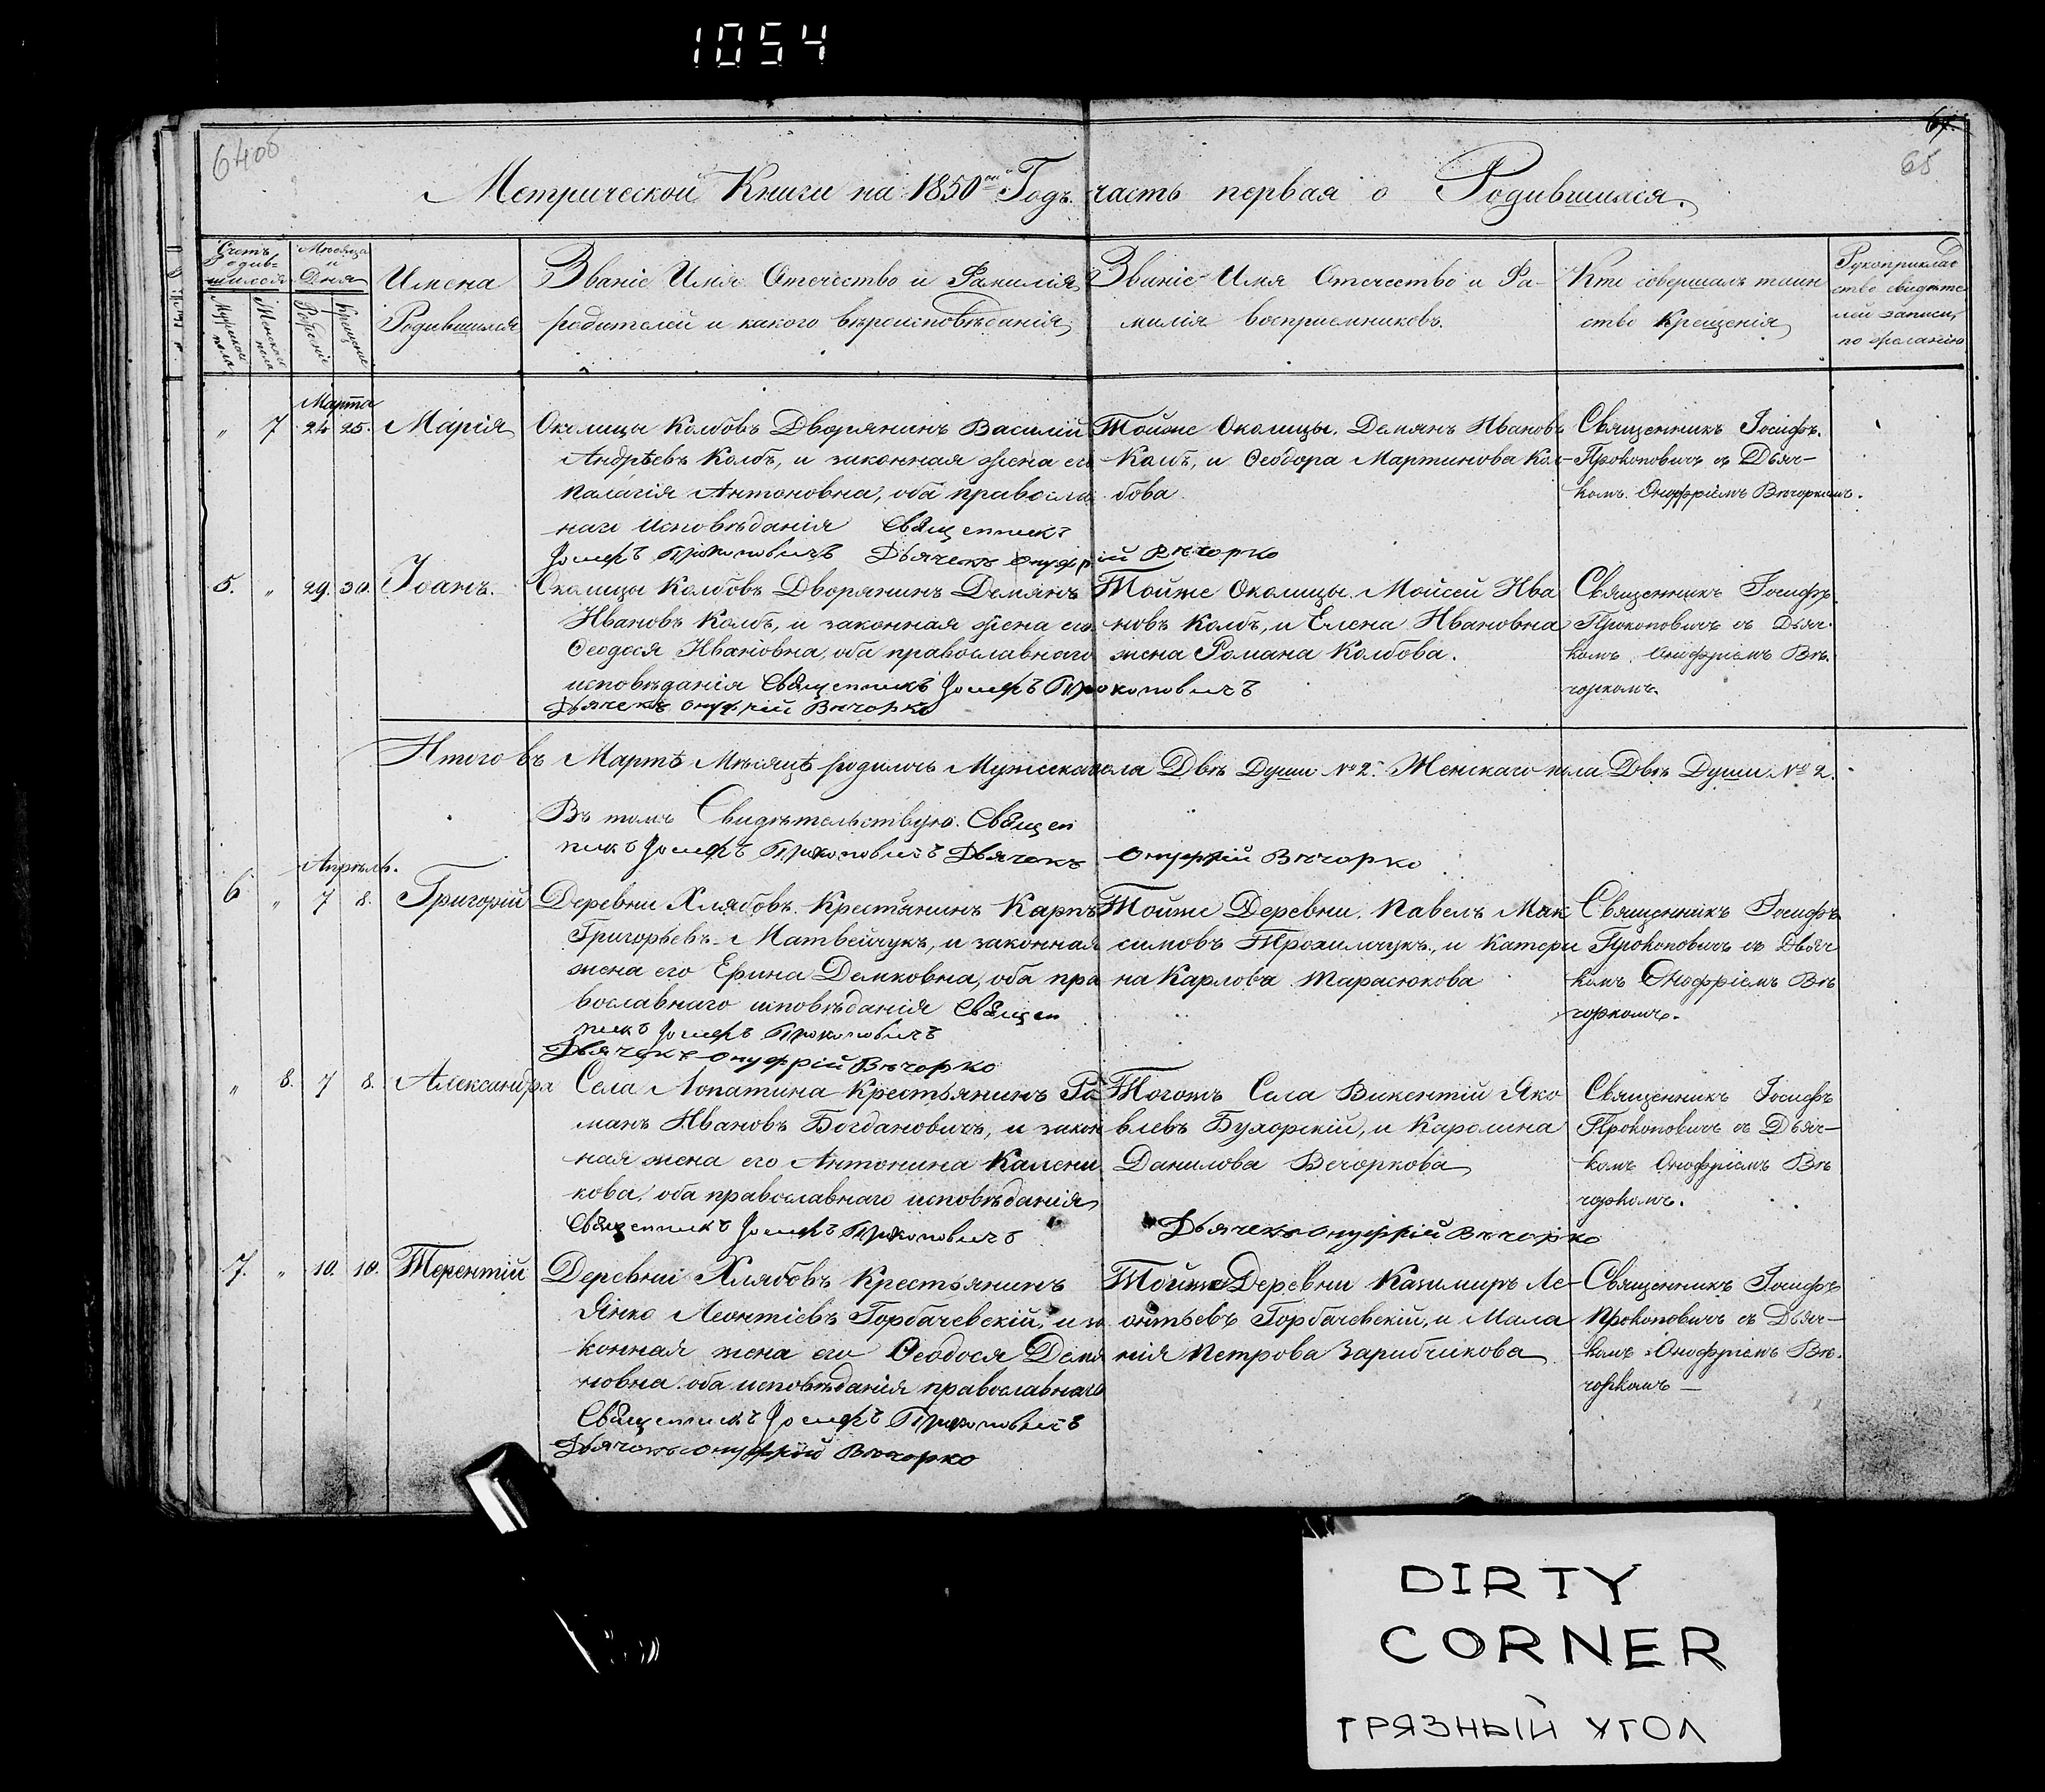 1054
640б
64.
65
Метрической Книги на 1850ый Годъ часть первая о Родившихся.
Счетъ родив-шихся
Мужеска пола
Женска пола
Мѣсяца и Дня
Рожденіе
Крещеніе
Имена Родившихся
Званіе Имя Отечество и Фамилія
родителей и какого вѣроисповѣданія
Званіе Имя Отечество и Фа-
милія восприемниковъ.
Кто совершалъ таин
ство Крещенія
Рукоприклад
ство свидѣте
лей записи,
по желанію
Марта
" 7 24 25. Марія
Околицы Колбовъ Дворянинъ Василій
Андрѣевъ Колбъ, и законная жена его
Палагія Антоновна, оба православ
наго исповѣданія Священникъ
Іосифъ Прокоповичъ Дьячекъ Онуфрій Вѣчорко
Тойже Околицы. Демянъ Ивановъ
Колбъ, и Ѳеодора Мартинова Кол-
бова
Священникъ Іосифъ.
Прокоповичъ съ Дьяч-
комъ Онофріемъ Вѣчоркомъ.
5. " 29. 30. Іоанъ.
Околицы Колбовъ Дворянинъ Демянъ
Ивановъ Колбъ, и законная жена его
Ѳеодося Ивановна, оба православнаго
исповѣданія Священникъ Іосифъ Прокоповичъ
Дьячекъ Онуфрій Вѣчорко
Тойже Околицы. Мойсей Ива
новъ Колбъ, и Елена Ивановна
жена Романа Колбова.
Священникъ Іосифъ
Прокоповичъ съ Дьяч-
комъ Онофріемъ Вѣ-
чоркомъ.
Итого въ Мартѣ Мѣсяцѣ родилось Мужескапола Двѣ Души №2. Женскаго пола Двѣ Души №2.
Въ томъ Свидѣтельствую. Священ
никъ Іосифъ Прокоповичъ Дьячекъ Онуфрій Вѣчорко
Апрѣль.
6 " 7 8. Григорій
Деревни Хлябовъ. Крестянинъ Карпъ
Григорьевъ Матвейчукъ, и законная
жена его Ерина Демковна, оба пра
вославнаго исповѣданія Священ
никъ Іосифъ Прокоповичъ
Дьячекъ Онуфрій Вѣчорко
Тойже Деревни. Павелъ Мак
симовъ Трохимчукъ, и Катери
на Карлова Тарасюкова
Священникъ Іосифъ
Прокоповичъ съ Дьяч
комъ Онофріемъ Вѣ
чоркомъ.
" 8. 7 8. Александра
Села Лопатина Крестьянинъ Ро
манъ Ивановъ Богдановичъ, и закон
ная жена его Антонина Калени
кова, оба православнаго исповѣданія
Священникъ Іосифъ Прокоповичъ
Тогожъ Села Викентій Яко
влевъ Бухорскій, и Каролина
Данилова Вечоркова
Дьячекъ Онуфрій Вѣчорко
Священникъ Іосифъ
Прокоповичъ съ Дьяч-
комъ Онофріемъ Вѣ
чоркомъ.
7. " 10. 10. Терентій
Деревни Хлябовъ Крестьянинъ
Янко Леонтіевъ Горбачевскій, и за
конная жена его Ѳеодося Демя
новна оба исповѣданія православнаго
Священникъ Іосифъ Прокоповичъ
Дьячекъ Онуфрій Вѣчорко
Тойже Деревни Казимиръ Ле-
онтьевъ Горбачевскій, и Мала
нія Петрова Зарибчикова
Священникъ Іосифъ
Прокоповичъ съ Дьяч-
комъ Онофріемъ Вѣ-
чоркомъ —
DIRTY
CORNER
ГРЯЗНЫЙ УГОЛ